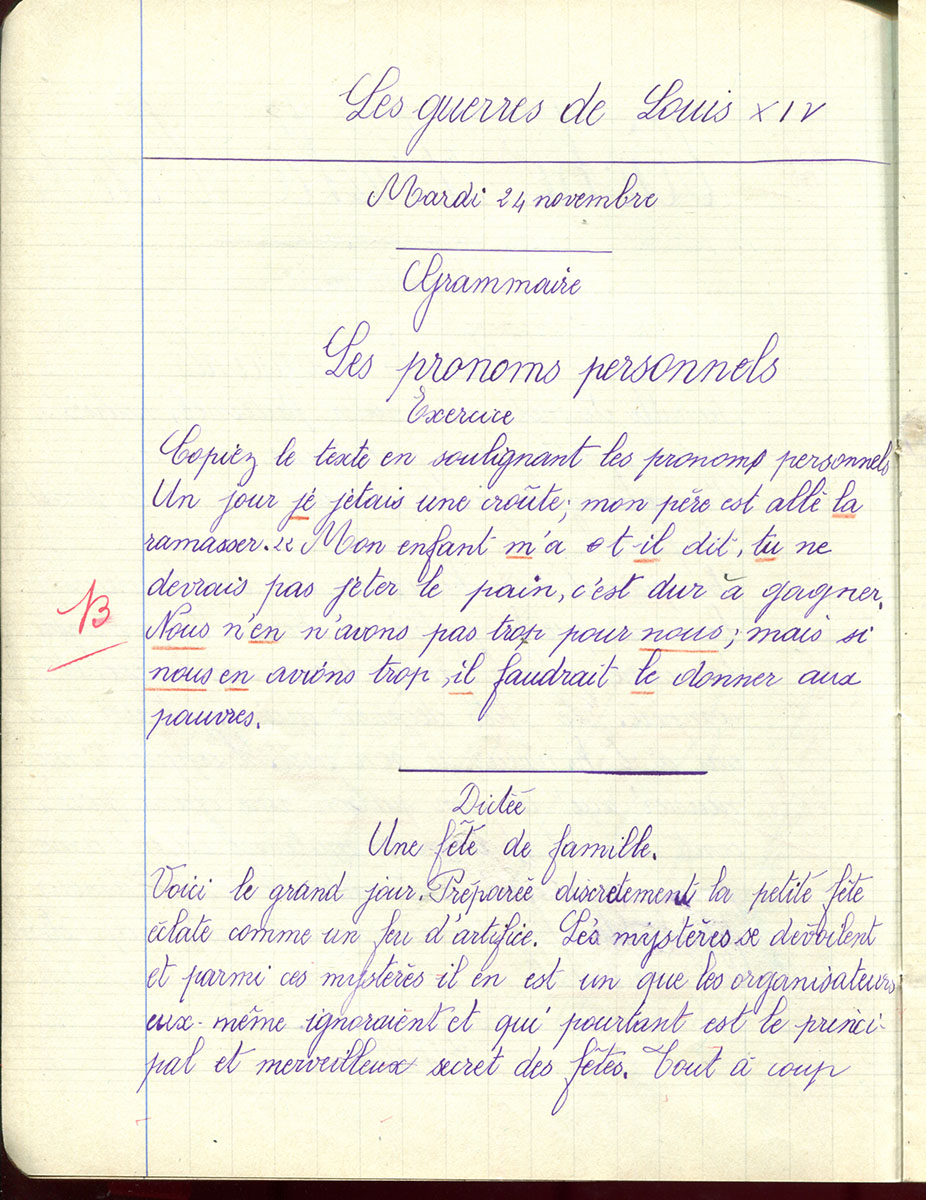 Les guerres de Louis XIV
Mardi 24 novembre
Grammaire
Les pronoms personnels
Exercice
Copiez le texte en soulignant les pronoms personnels
Un jour je jetais une croûte; mon père est allé la
ramasser. "Mon enfant m'a et il dit, tu ne
devrais pas jeter le pain, c'est dur à gagner.
Nous n'en n'avons pas trop pour nous; mais si
nous en avions trop, il faudrait le donner aux
pauvres.
B
Dictée
Une fête de famille.
Voici le grand jour. Préparée discrètement la petite fête
éclate comme un feu d'artifice. Les mystères se dévoilent
et parmi ces mystères il en est un que les organisateurs
eux-même ignoraient et qui pourtant est le princi-
pal et merveilleux secret des fêtes. Tout à coup